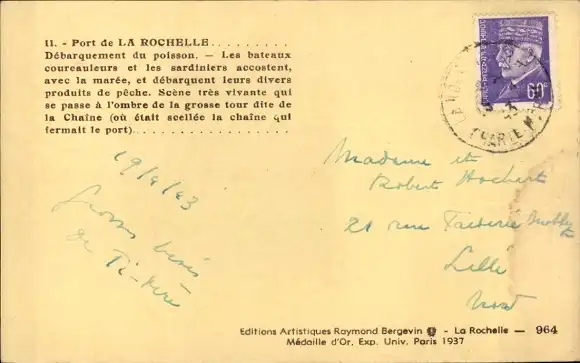 11. - Port de LA ROCHELLE. . . . . . . . . .
Débarquement du poisson. — Les bateaux
coureauleurs et les sardiniers accostent,
avec la marée, et débarquent leurs divers
produits de pêche. Scène très vivante qui
se passe à l'ombre de la grosse tour dite de
la Chaîne (où était scellée la chaîne qui
fermait le port). . . . . . . . . . . . . . . . .
60c
19/4/43
Gros bisous
de
Madame et
Robert Hochert
21 rue
Lille
Nord
Editions Artistiques Raymond Bergevin - La Rochelle — 964
Médaille d'Or, Exp. Univ. Paris 1937